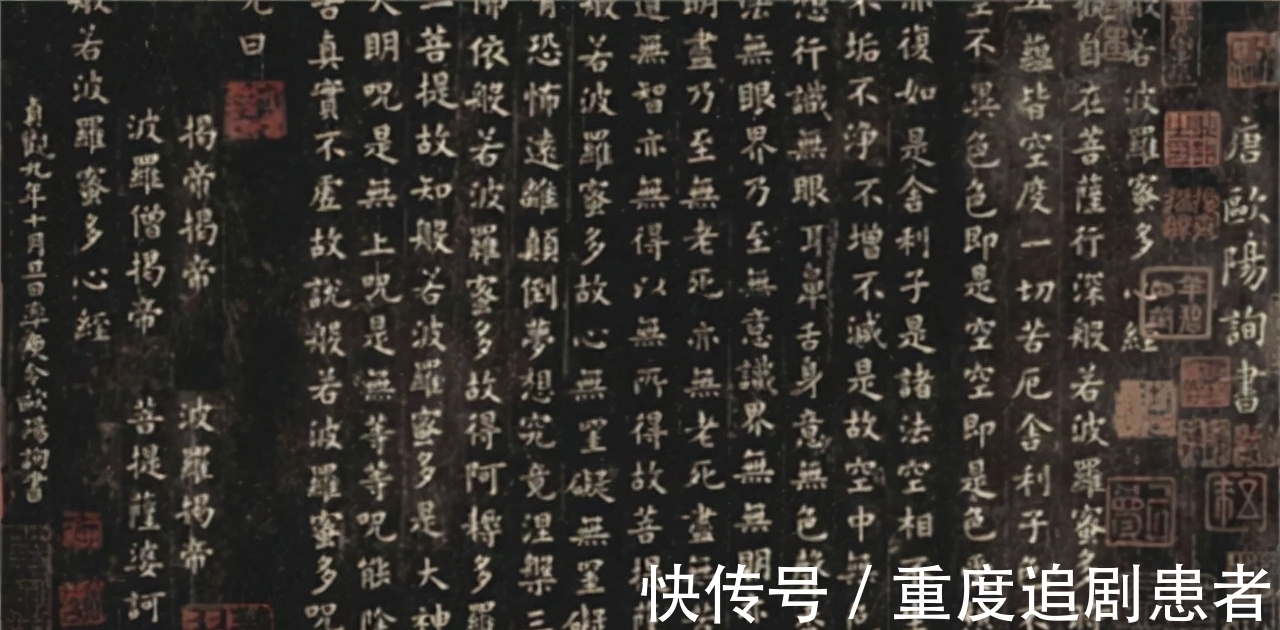 唐歐陽詢書
般若波羅蜜多心經
自在菩薩行深般若波羅蜜多
五蘊皆空度一切苦厄舍利子
空不異色色即是空空即是色
亦復如是舍利子是諸法空相
不垢不淨不增不減是故空中無
想行識無眼耳鼻舌身意無色
無眼界乃至無意識界無無明
明盡乃至無老死亦無老死盡
道無智亦無得以無所得故菩提
般若波羅蜜多故心無罣礙無罣礙
有恐怖遠離顛倒夢想究竟涅槃三
佛依般若波羅蜜多故得阿耨多羅
三菩提故知般若波羅蜜多是大神
大明呪是無上呪是無等等呪能除
苦真實不虛故說般若波羅蜜多呪
曰
揭帝揭帝 波羅揭帝
波羅僧揭帝 菩提薩婆訶
般若波羅蜜多心經
貞觀九年十月旦日率更令歐陽詢書
快传号 / 重度追剧患者